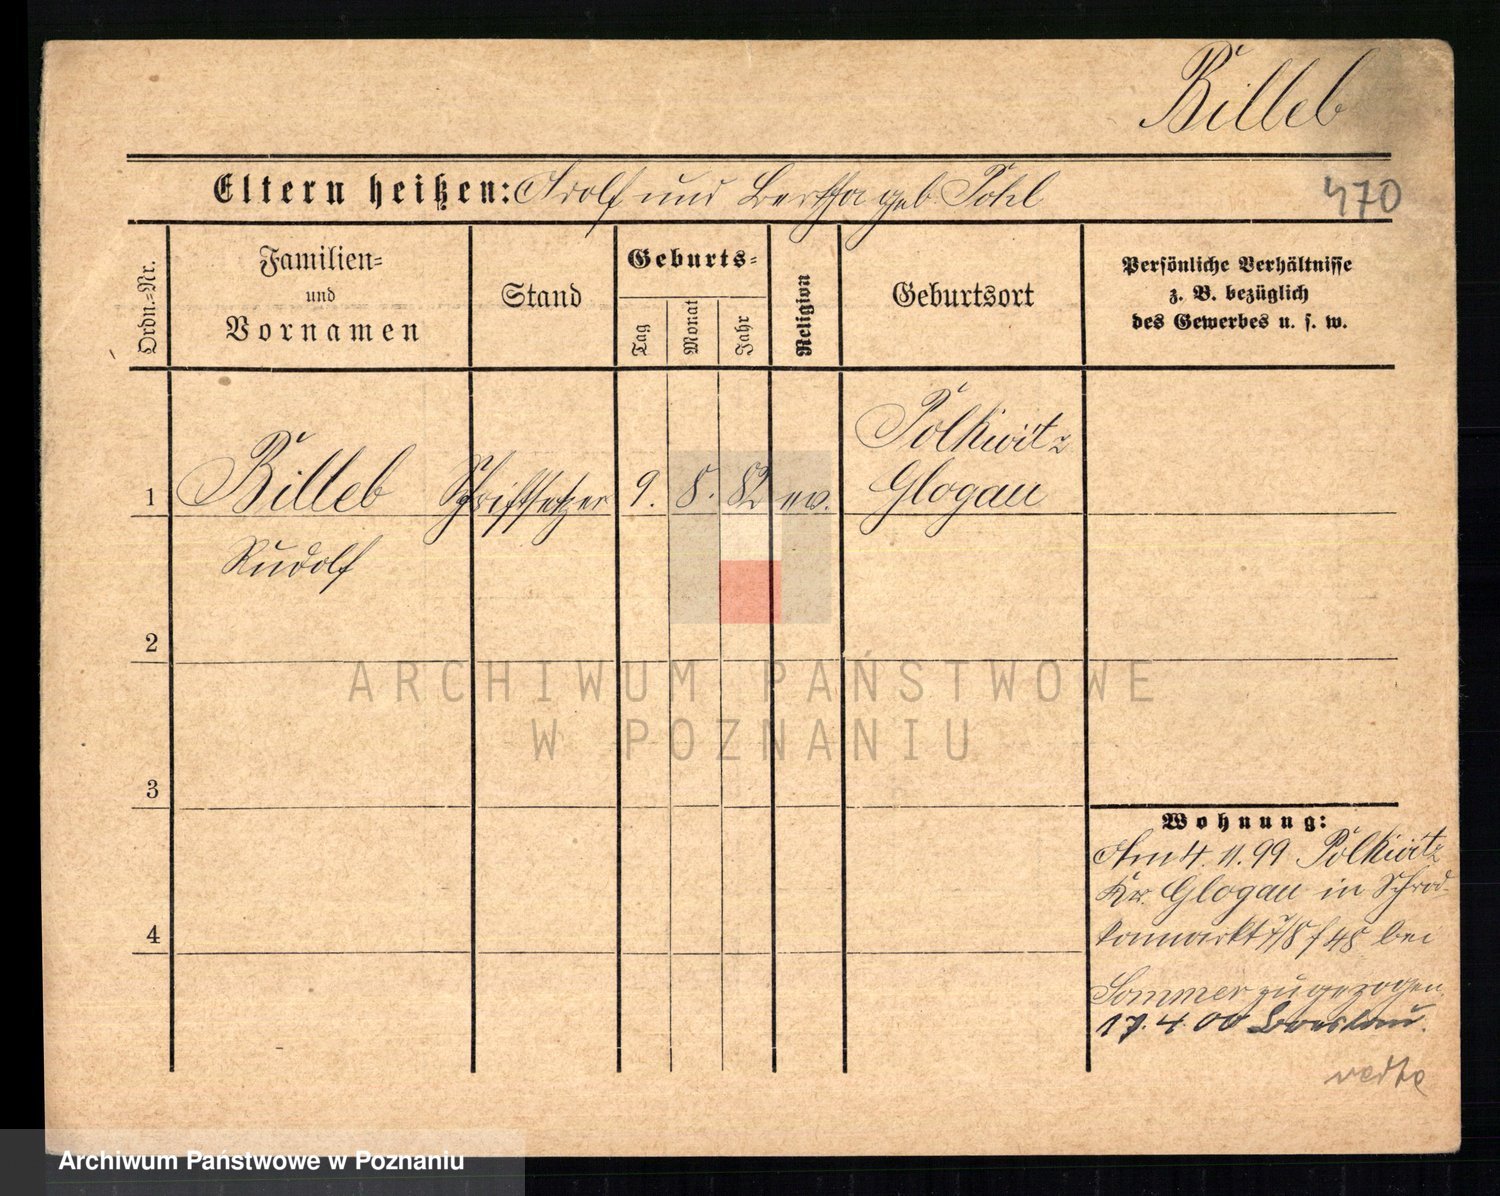 Billeb
Eltern heißen: Adolf und Bertha geb. Pohl
470
Ordn.=Nr.
Familien=
und
Vornamen
Stand
Geburts=
Tag
Monat
Jahr
Religion
Geburtsort
Persönliche Verhältnisse
z. B. bezüglich
des Gewerbes u. s. w.
1 Billeb Schriftsetzer 9. 8. 82 ev. Polkwitz
Glogau
Rudolf
2
3
4
Wohnung:
Am 4. 11. 99 Polkwitz
Kr. Glogau in Schrod-
kamarkt 7/8 f 48 bei
Sommer zugezogen.
17. 4. 00 Breslau.
ARCHIWUM PAŃSTWOWE
W POZNANIU
Archiwum Państwowe w Poznaniu